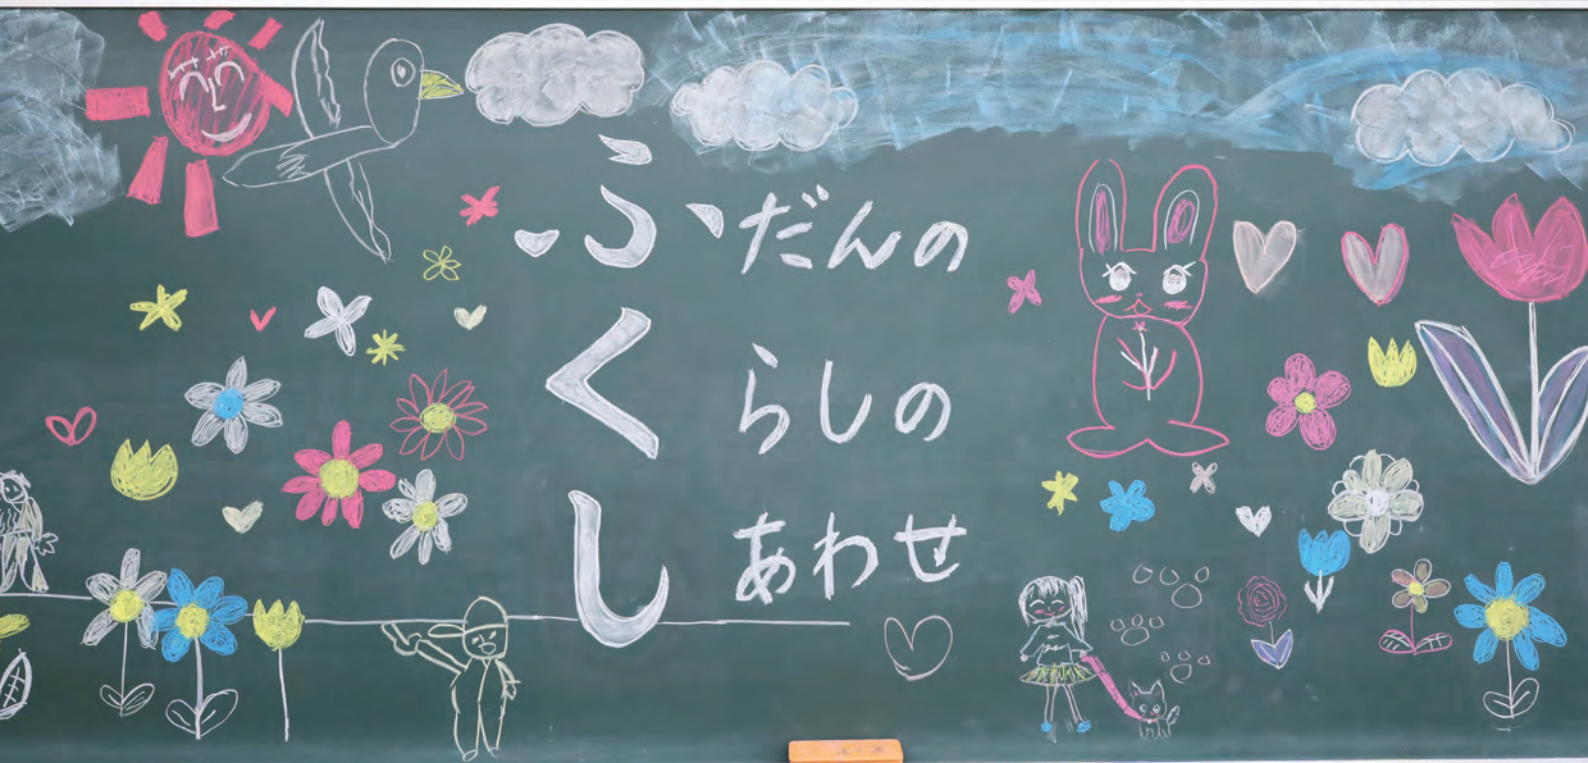 ふだんの
くらしの
しあわせ